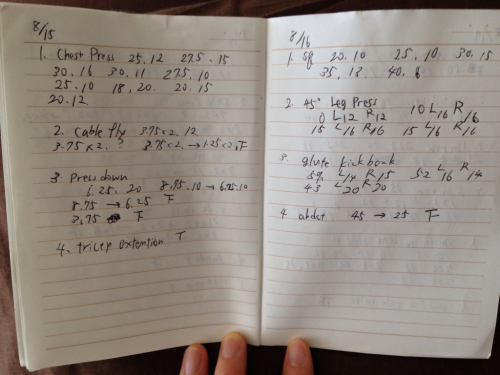 8/15
1. Chest Press 25.12 27.5.15
30.16 30.11 27.5.10
25.10 18.20 20.15
20.12
2. Cable fly 3.75×2.12
3.75×2.? 3.75×2.→1.25×2.F
3. Press down
6.25.20 8.75.10→6.25.10
8.75→6.25 F
3.75 F
4. tricep extention F
8/16
1. Sq 20.10 25.10 30.15
35.13 40.6
2. 45° Leg Press
0 L12 R12 10 L16 R16
15 L16 R16 15 L16 R16
3. glute kickback
59 L14 R15 52 L16 R14
45 L20 R20
4. abdct 45→25 F